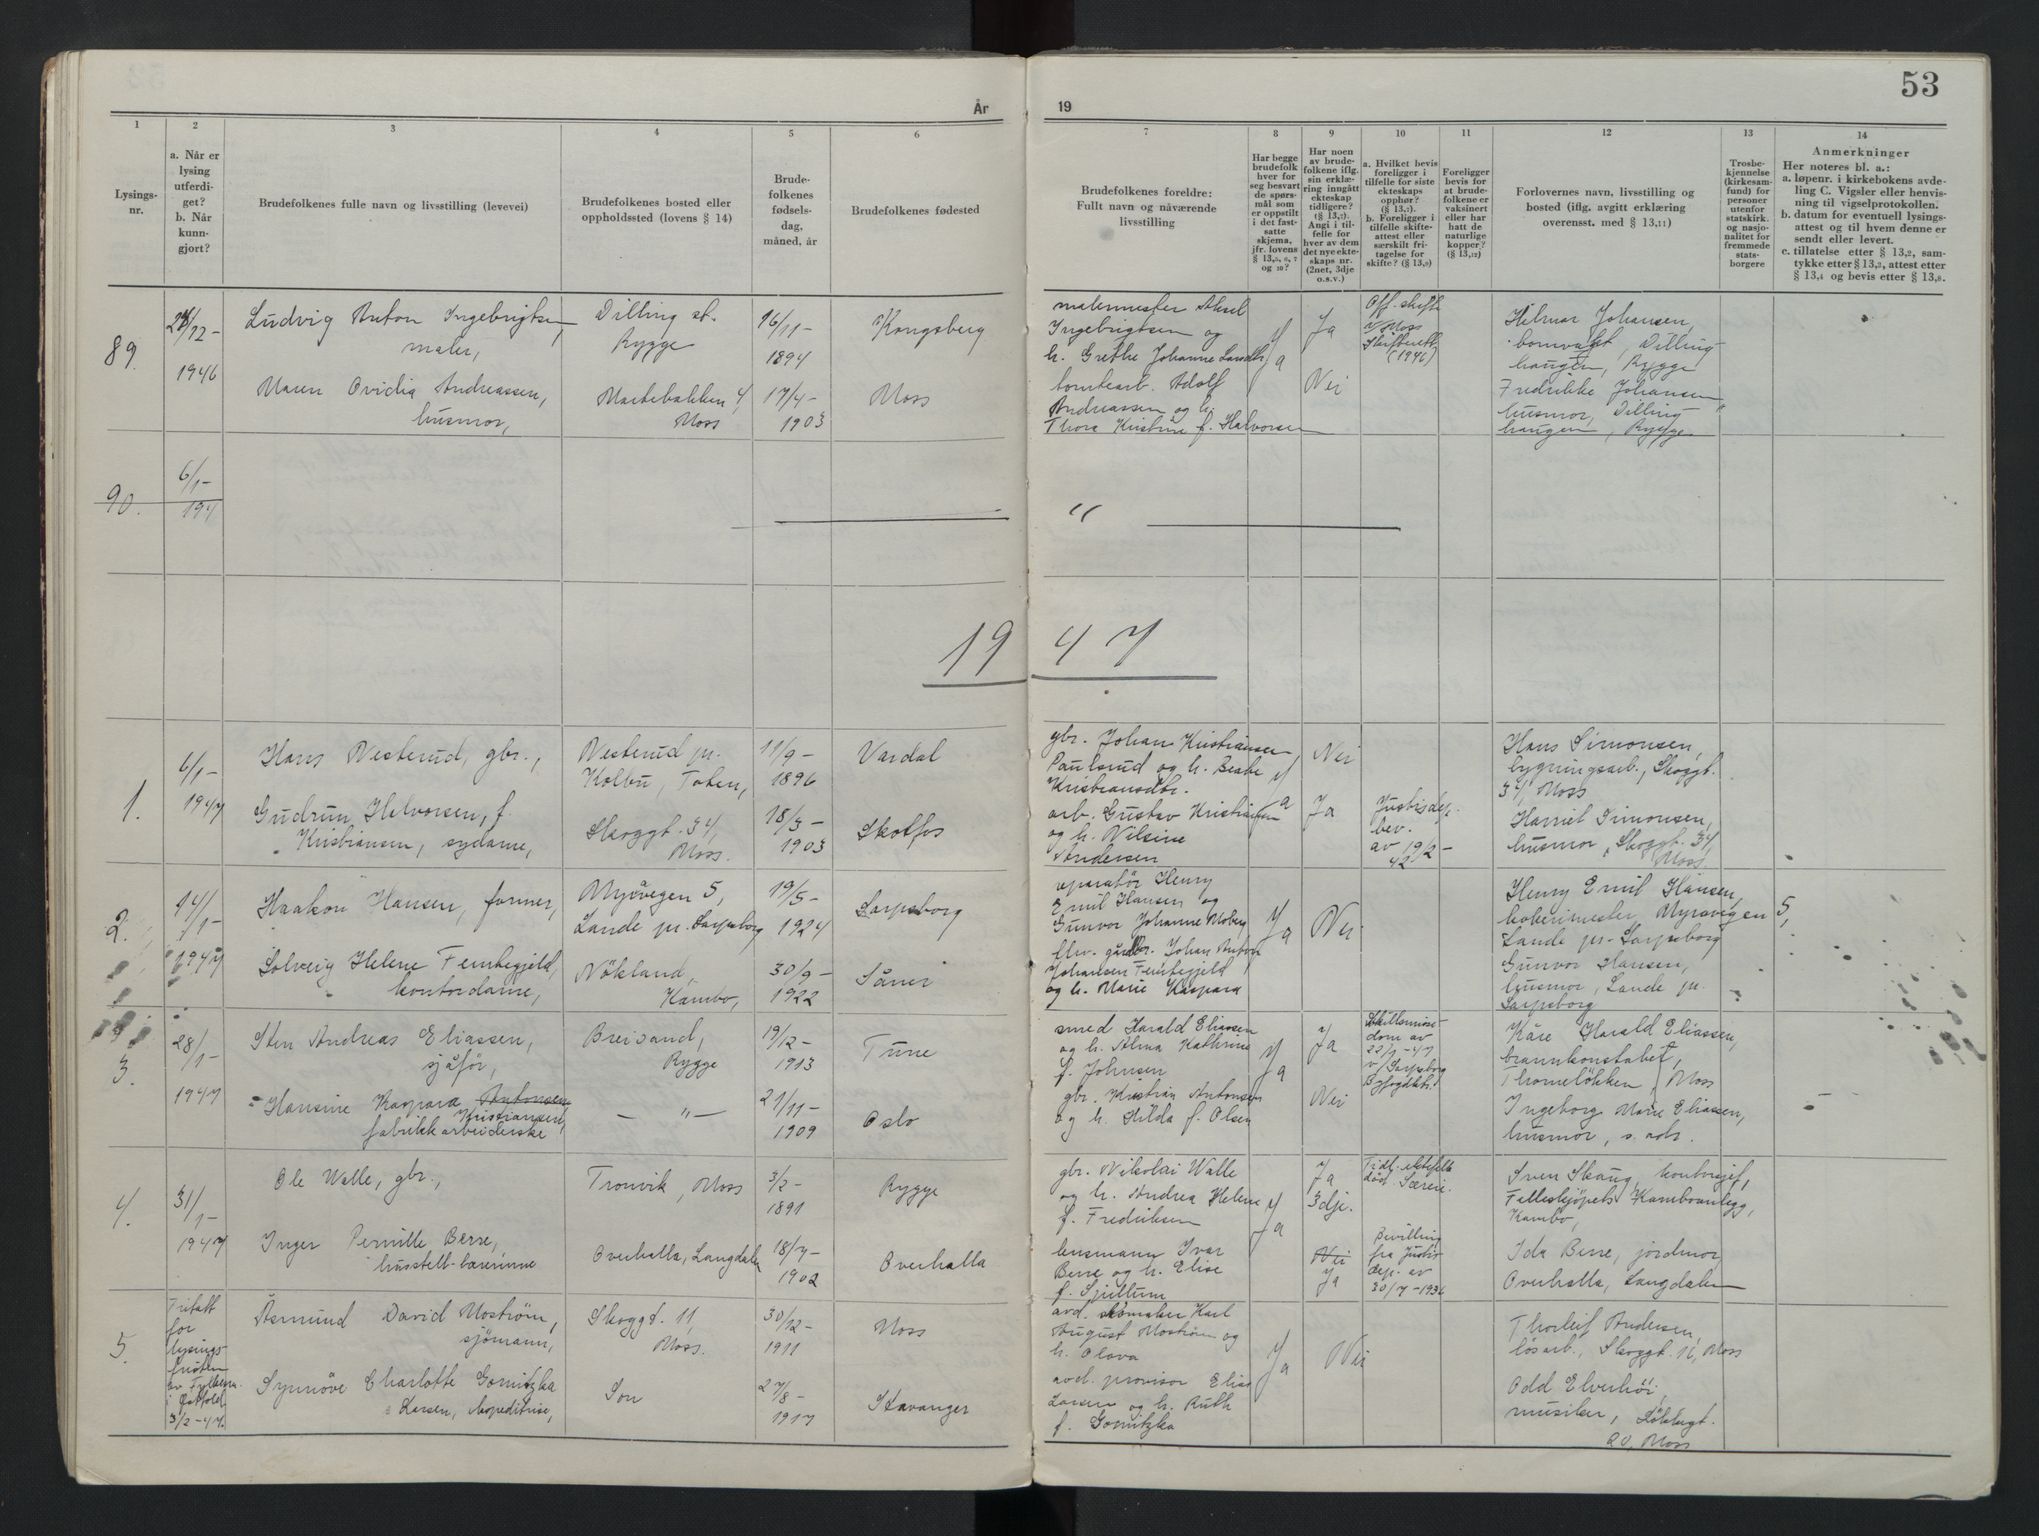 53
År
19
1
2
3
4
5
6
7
8
9
10
11
12
13
14
Lysings-
nr.
a. Når er
lysing
utferdi-
get?
b. Når
kunn-
gjort?
Brudefolkenes fulle navn og livsstilling (levevei)
Brudefolkenes bosted eller
oppholdssted (lovens § 14)
Brude-
folkenes
fødsels-
dag,
måned, år
Brudefolkenes fødested
Brudefolkenes foreldre:
Fullt navn og nåværende
livsstilling
Har begge
brudefolk
hver for
seg besvart
de spørs-
mål som
er oppstilt
i det fast-
satte
skjema,
jfr. lovens
§ 13,5, 6, 7
og 10?
Har noen
av brude-
folkene iflg.
sin erklæ-
ring inngått
ekteskap
tidligere?
(§ 13,7).
Angi i til-
felle for
hver av dem
det nye ekte-
skaps nr.
(2net, 3dje
o.s.v.)
a. Hvilket bevis
foreligger i
tilfelle for siste
ekteskaps
opphør?
(§ 13,7).
b. Foreligger i
tilfelle skifte-
attest eller
særskilt fri-
tagelse for
skifte? (§ 13,9)
Foreligger
bevis for
at brude-
folkene er
vaksinert
eller har
hatt de
naturlige
kopper?
(§ 13,12)
Forlovernes navn, livsstilling og
bosted (iflg. avgitt erklæring
overensst. med § 13,11)
Trosbe-
kjennelse
(kirkesam-
fund) for
personer
utenfor
statskirk.
og nasjo-
nalitet for
fremmede
stats-
borgere
Anmerkninger
Her noteres bl. a.:
a. løpenr. i kirkebokens avde-
ling C. Vigsler eller henvis-
ning til vigselprotokollen.
b. datum for eventuell lysings-
attest og til hvem denne er
sendt eller levert.
c. tillatelse etter § 13,2, sam-
tykke etter § 13,3, attest etter
§ 13,4 og bevis etter § 13,8.
89.
/12-
1946
Ludvig Anton Ingebrigtsen
maler,
Dilling st.
Rygge
16/11-
1894
Kongsberg
malermester Aksel
Ingebrigtsen og
h. Grethe Johanne
Ja
Ja
Off. skifte
v/Moss
Skifterett
(1946)
Hilmar Johansen,
banevakt, Dilling
haugen, Rygge
Maren Ovidia Andreassen,
husmor,
Moss
17/4-
1903
Moss
Adolf
Andreassen og h.
Thora Kristine f. Halvorsen
Nei
Fredrikke Johansen
husmor, Dilling
haugen, Rygge
90.
6/1-
194
"
19 47
1.
6/1-
1947
Hans Nesterud, gbr.,
Nesterud pr.
Kolbu, Toten,
11/9-
1896
Vardal
gbr. Johan Kristiansen
Paulsrud og h. Beate
Kristiansdtr.
Ja
Nei
Hans Simonsen,
bygningsarb., Skoggt.
34, Moss
Gudrun Halvorsen, f.
Kristiansen, sydame,
Skoggt. 34,
Moss.
18/3-
1903
Skotfos
arb. Gustav Kristiansen
og h. Nilsine
Andersen
Ja
Justisdep.
bev.
av 19/2-
42
Harriet Simonsen,
husmor, Skoggt. 34,
Moss
2.
14/1-
1947
Haakon Hansen, former,
Myrvegen 5,
Lande pr. Sarpsborg
19/5-
1924
Sarpsborg
reparatør Henry
Emil Hansen og
Gunvor Johanne Moberg
Ja
Nei
Henry Emil Hansen,
Myravegen 5,
Lande pr. Sarpsborg
Solveig Helene Femtegjeld,
kontordame,
Nökland,
Kambo,
30/9-
1922
Såner
Johan Anton
Johansen Femtegjeld
og h. Marie Kaspara
Gunvor Hansen,
husmor, Lande pr.
Sarpsborg
3.
28/1-
1947
Sten Andreas Eliassen,
sjåför,
Breisand,
Rygge
19/12-
1913
Tune
smed Harald Eliassen
og h. Alma Kathrine
f. Johnsen
Ja
Ja
Skillsmisse-
dom av
22/1-47
v/Sarpsborg
Byfogdktr.
Kåre Harald Eliassen,
brannkonstabel,
Thorneløkken, Moss
Hansine Kaspara Antonsen
Kristiansen,
fabrikkarbeiderske
- " -
21/11-
1909
Oslo
gbr. Kristian Antonsen
og h. Hilda f. Olsen
Nei
Ingeborg Marie Eliassen,
husmor, s. adr.
4.
31/1-
1947
Ole Walle, gbr.,
Tronvik, Moss
3/2-
1891
Rygge
gbr. Nikolai Walle
og h. Andrea Helene
f. Fredriksen
Ja
Ja
3dje.
Tidl. ektefelle
död.
Sven Skaug, kontorsjef,
Felleskjøpets Kamboanlegg,
Kambo,
Inger Pernille Berre,
husstell-lærerinne
Overhalla, Langdalen
18/7-
1902
Overhalla
lensmann Ivar
Berre og h. Elise
f. Spillum
Nei
Ja
Bevilling
fra Justis-
dep. av
30/7-1936
Ida Berre, jordmor
Overhalla, Langdalen
5.
Fritatt
for
lysings-
fristen
av Fylkesm.
i Østfold
3/2-47.
Åsmund David Moström,
sjömann,
Skoggt. 11,
Moss.
30/12-
1911
Moss
avd. skomaker Karl
August Moström og
h. Olava
Ja
Nei
Thorleif Andersen,
løsarb., Skoggt. 11, Moss
Synnöve Charlotte Gomitzka
Larsen, ekspeditrise,
Son
27/8-
1917
Stavanger
avd. provisor Elias
Larsen og h. Ruth
f. Gomitzka
Odd Elverhöi,
musiker,
20, Moss